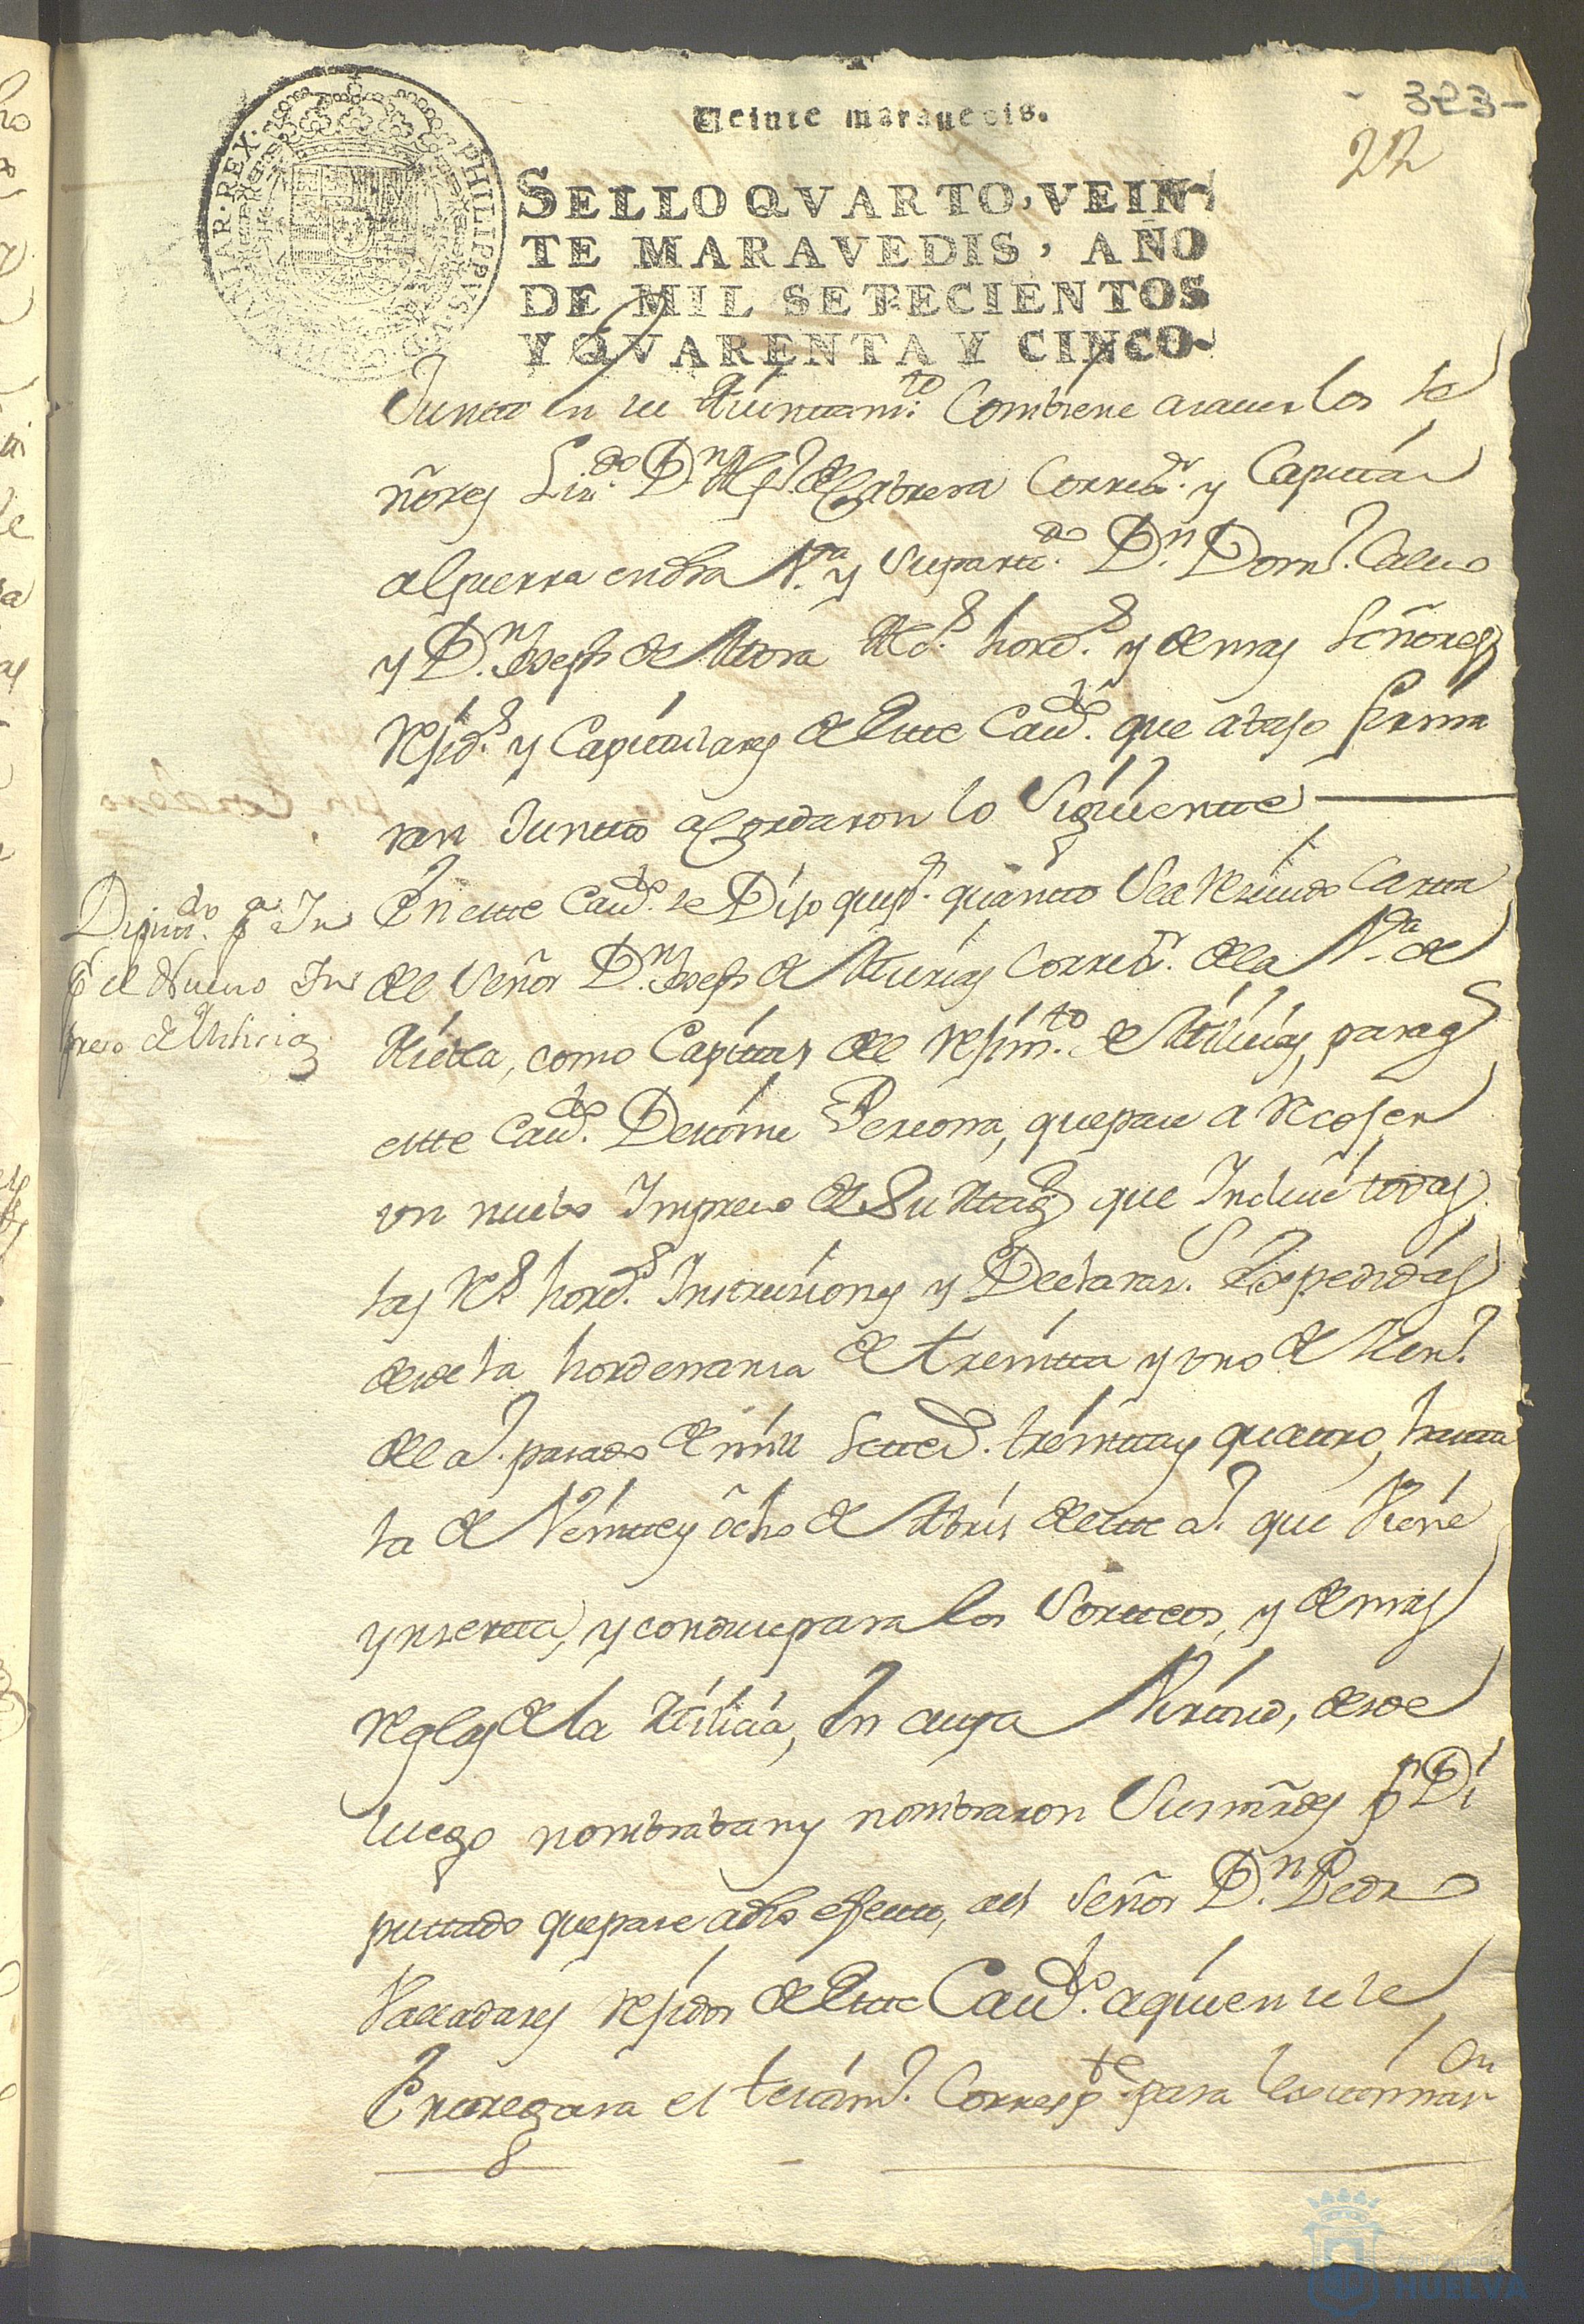 - 323 -
22
Veinte maravedis.
PHILIPPVS
REX
SELLO QVARTO, VEIN-
TE MARAVEDIS, AÑO
DE MIL SETECIENTOS
Y QVARENTA Y CINCO
Junta en su Aiuntam.to Combiene a saver los se
ñores Liz.do D.n Cabrera Corre.dor y Capitan
a guerra en dha V.a y su part.do D.n Dom.o Calvo
y D.n Joseph de Mora Alc.s hord.s y demas Señores
Rejid.s y Capitulares de Este Cav.do que abajo firma
ran Juntto acordaron lo Siguientte
Diputt.do p.a
p.a el Nuevo Im
preso de Milicias
En este Cav.do se Dijo que p.r quantto Sea Resiuido Cartta
del Señor D.n Joseph de Corre.dor de la V.a de
Niebla, como Capitan del Rejim.to de Milicias, para q
este Cav.do Destine Persona, que pase a Recojer
un nuebo Impreso de Su Mag que Inclue todas
las R.s hord.s Instruciones y Declaraz. Expedidas
desde la hordenanza de treintta y uno de Hen.o
del a.o pasado de mill Settec.s treintta y quatro, hasta
la de Veintte y ocho de Abril de este a.o que Viene
ynsertta, y conduse para los Sortteos, y demas
Reglas de la Milicia, En cuya Virtud, desde
luego nombraban y nombraron Sus mrdes p.r Di
puttado que pase a dho efectto, al Señor D.n Pedro
Valladares Rejidor de Este Cav.do a quien se le
Entregara el testim.o Corresp.te para lexitimar
On
HUELVA